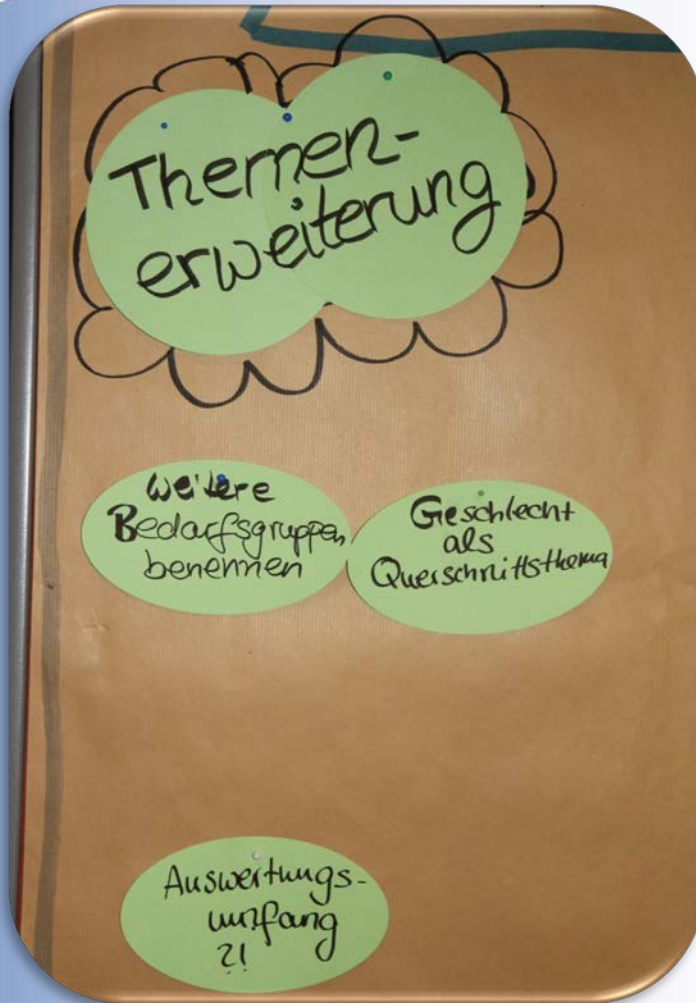 Themen-
erweiterung
weitere
Bedarfsgruppen
benennen
Geschlecht
als
Querschnittsthema
Auswertungs-
umfang
?!